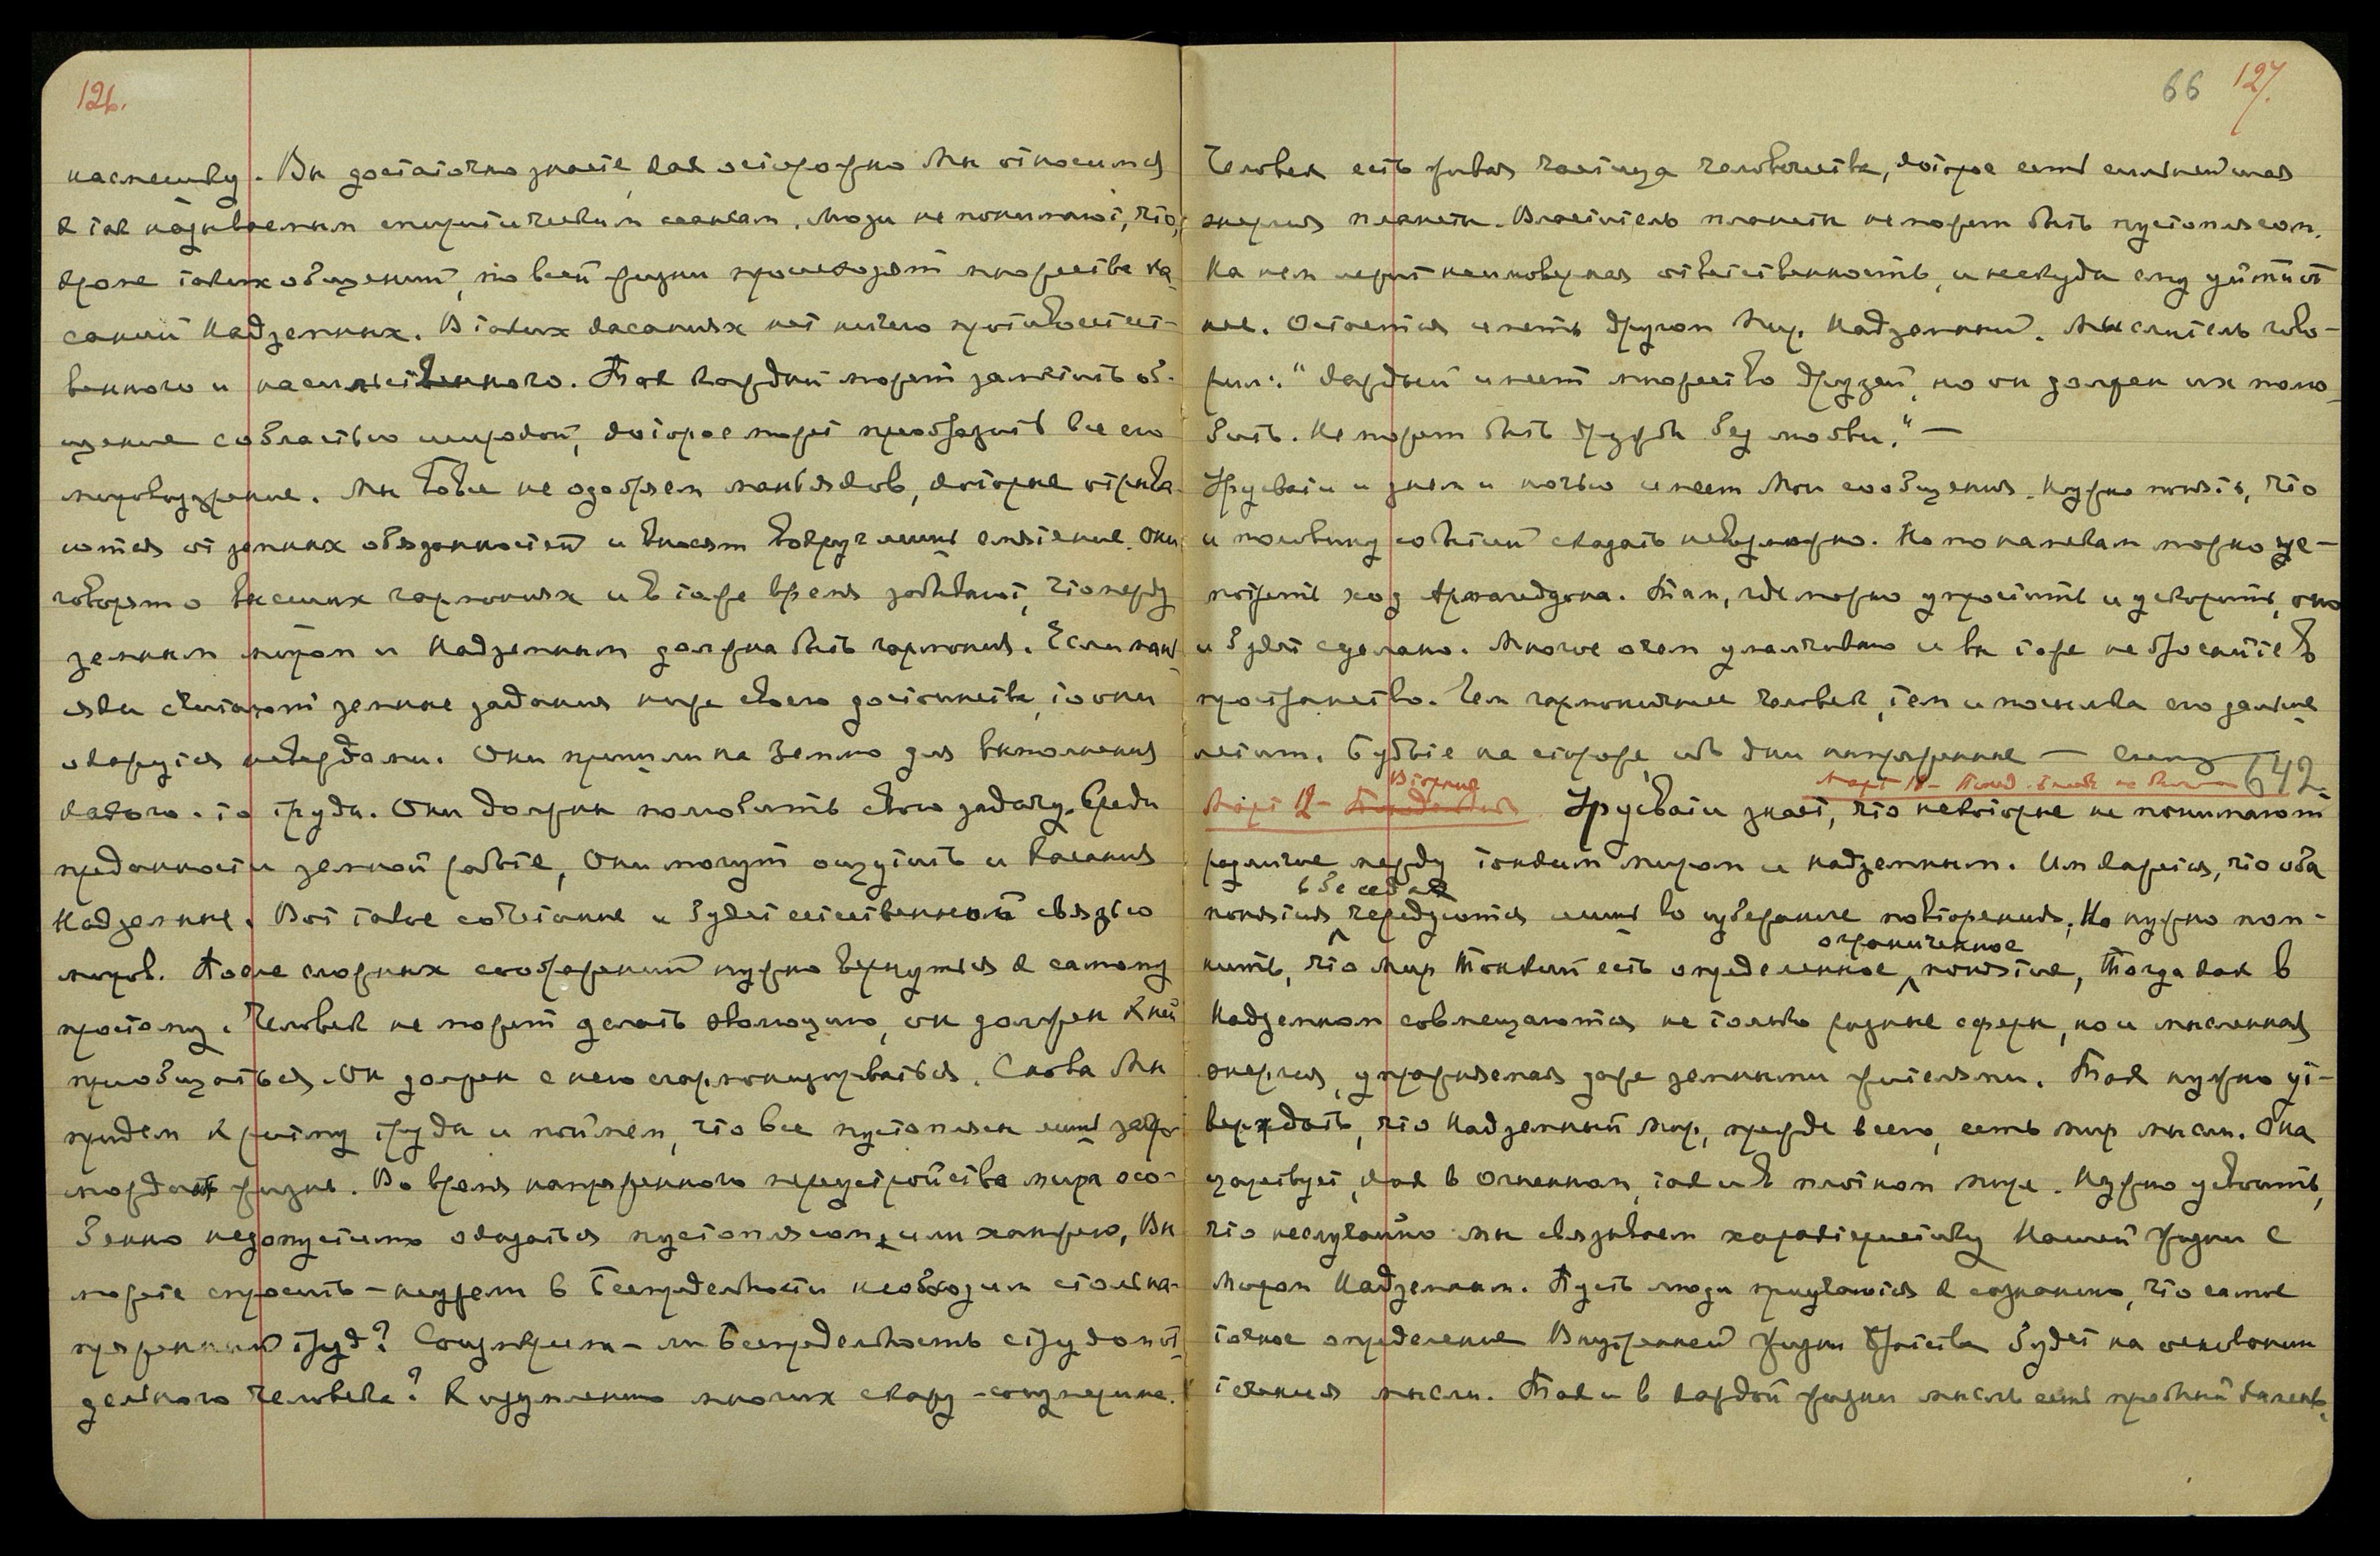 126.
насмешку. Вы достаточно знаете, как осторожно Мы относимся
к так называемым спиритическим сеансам. Люди не понимают, что,
кроме таких общений, по всей жизни происходят множества ка-
саний Надземных. В таких касаниях нет ничего противоестест-
венного и насильственного. Так каждый может заметить об-
щение с областью широкой, которое может преобразить все его
мировоззрение. Мы вовсе не одобряем маньяков, которые отрыва-
ются от земных обязанностей и вносят вокруг лишь смятение. Они
говорят о высших гармониях и в то же время забывают, что между
земным миром и Надземным должна быть гармония. Если мань-
яки считают земные задания ниже своего достоинства, то они
окажутся невеждами. Они пришли на Землю для выполнения
какого-то труда. Они должны полюбить свою задачу. Среди
преданности земной работе, Они могут ощутить и касания
Надземные. Вот такое сочетание и будет естественной связью
миров. После сложных соображений нужно вернуться к самому
простому. Человек не может делать эволюцию, он должен к ней
приобщаться. Он должен с нею сгармонизироваться. Снова Мы
придем к ритму труда и поймем, что все пустоплясы лишь загро-
мождают жизнь. Во время напряженного переустройства мира осо-
бенно недопустимо оказаться пустоплясом, или ханжею. Вы
можете спросить – неужели в Беспредельности необходим столь на-
пряженный труд? Соизмерима-ли Беспредельность с трудом от-
дельного человека? К изумлению многих скажу – соизмерима.
66 127.
Человек есть живая частица человечества, которое есть сильнейшая
энергия планеты. Властитель планеты не может быть пустоплясом.
На нем лежит неимоверная ответственность, и некуда ему уйти от
нее. Остается иметь другом Мир Надземный. Мыслитель гово-
рил: "каждый имеет множество друзей, но он должен их полю-
бить. Не может быть дружбы без любви." —
Урусвати и днем и ночью имеет Мои сообщения. Нужно понять, что
и половину событий сказать невозможно. Но по намекам можно
ход Армагеддона. Там, где можно упростить и ускорить, оно
и будет сделано. Многое о чем умалчиваю и вы тоже не бросайте в
пространство. Чем гармоничнее человек, тем и посылка его дальше
летит. Будьте на стороже, в дни напряженные —
642.
Март 12 –
Вторник
Урусвати знает, что некоторые не понимают
различие между тонким миром и надземным. Им кажется, что оба
понятия чередуются лишь во избежание повторения. Но нужно пом-
в беседах
нить, что Мир Тонкий есть определенное, понятие, Тогда как в
ограниченное
Надземном совмещаются не только разные сферы, но и мысленная
энергия, упражняемая даже земными жителями. Так нужно ут-
верждать, что Надземный Мир, прежде всего, есть мир мысли. Она
царствует, как в Огненном, так и в плотном мире. Нужно усвоить,
что неслучайно мы связываем характеристику Нашей жизни с
Миром Надземным. Пусть люди приучаются к сознанию, что самое
точное определение Внутренней жизни Братства будет на основании
течения мысли. Так и в каждой жизни мысль есть пробный камень.